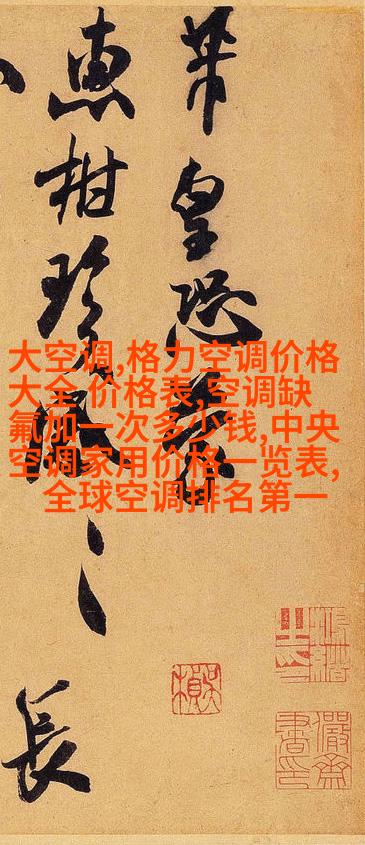 芾皇恐蒙
惠柑珍感〻長
大空调,格力空调价格
大全 价格表,空调缺
氟加一次多少钱,中央
空调家用价格一览表,
全球空调排名第一